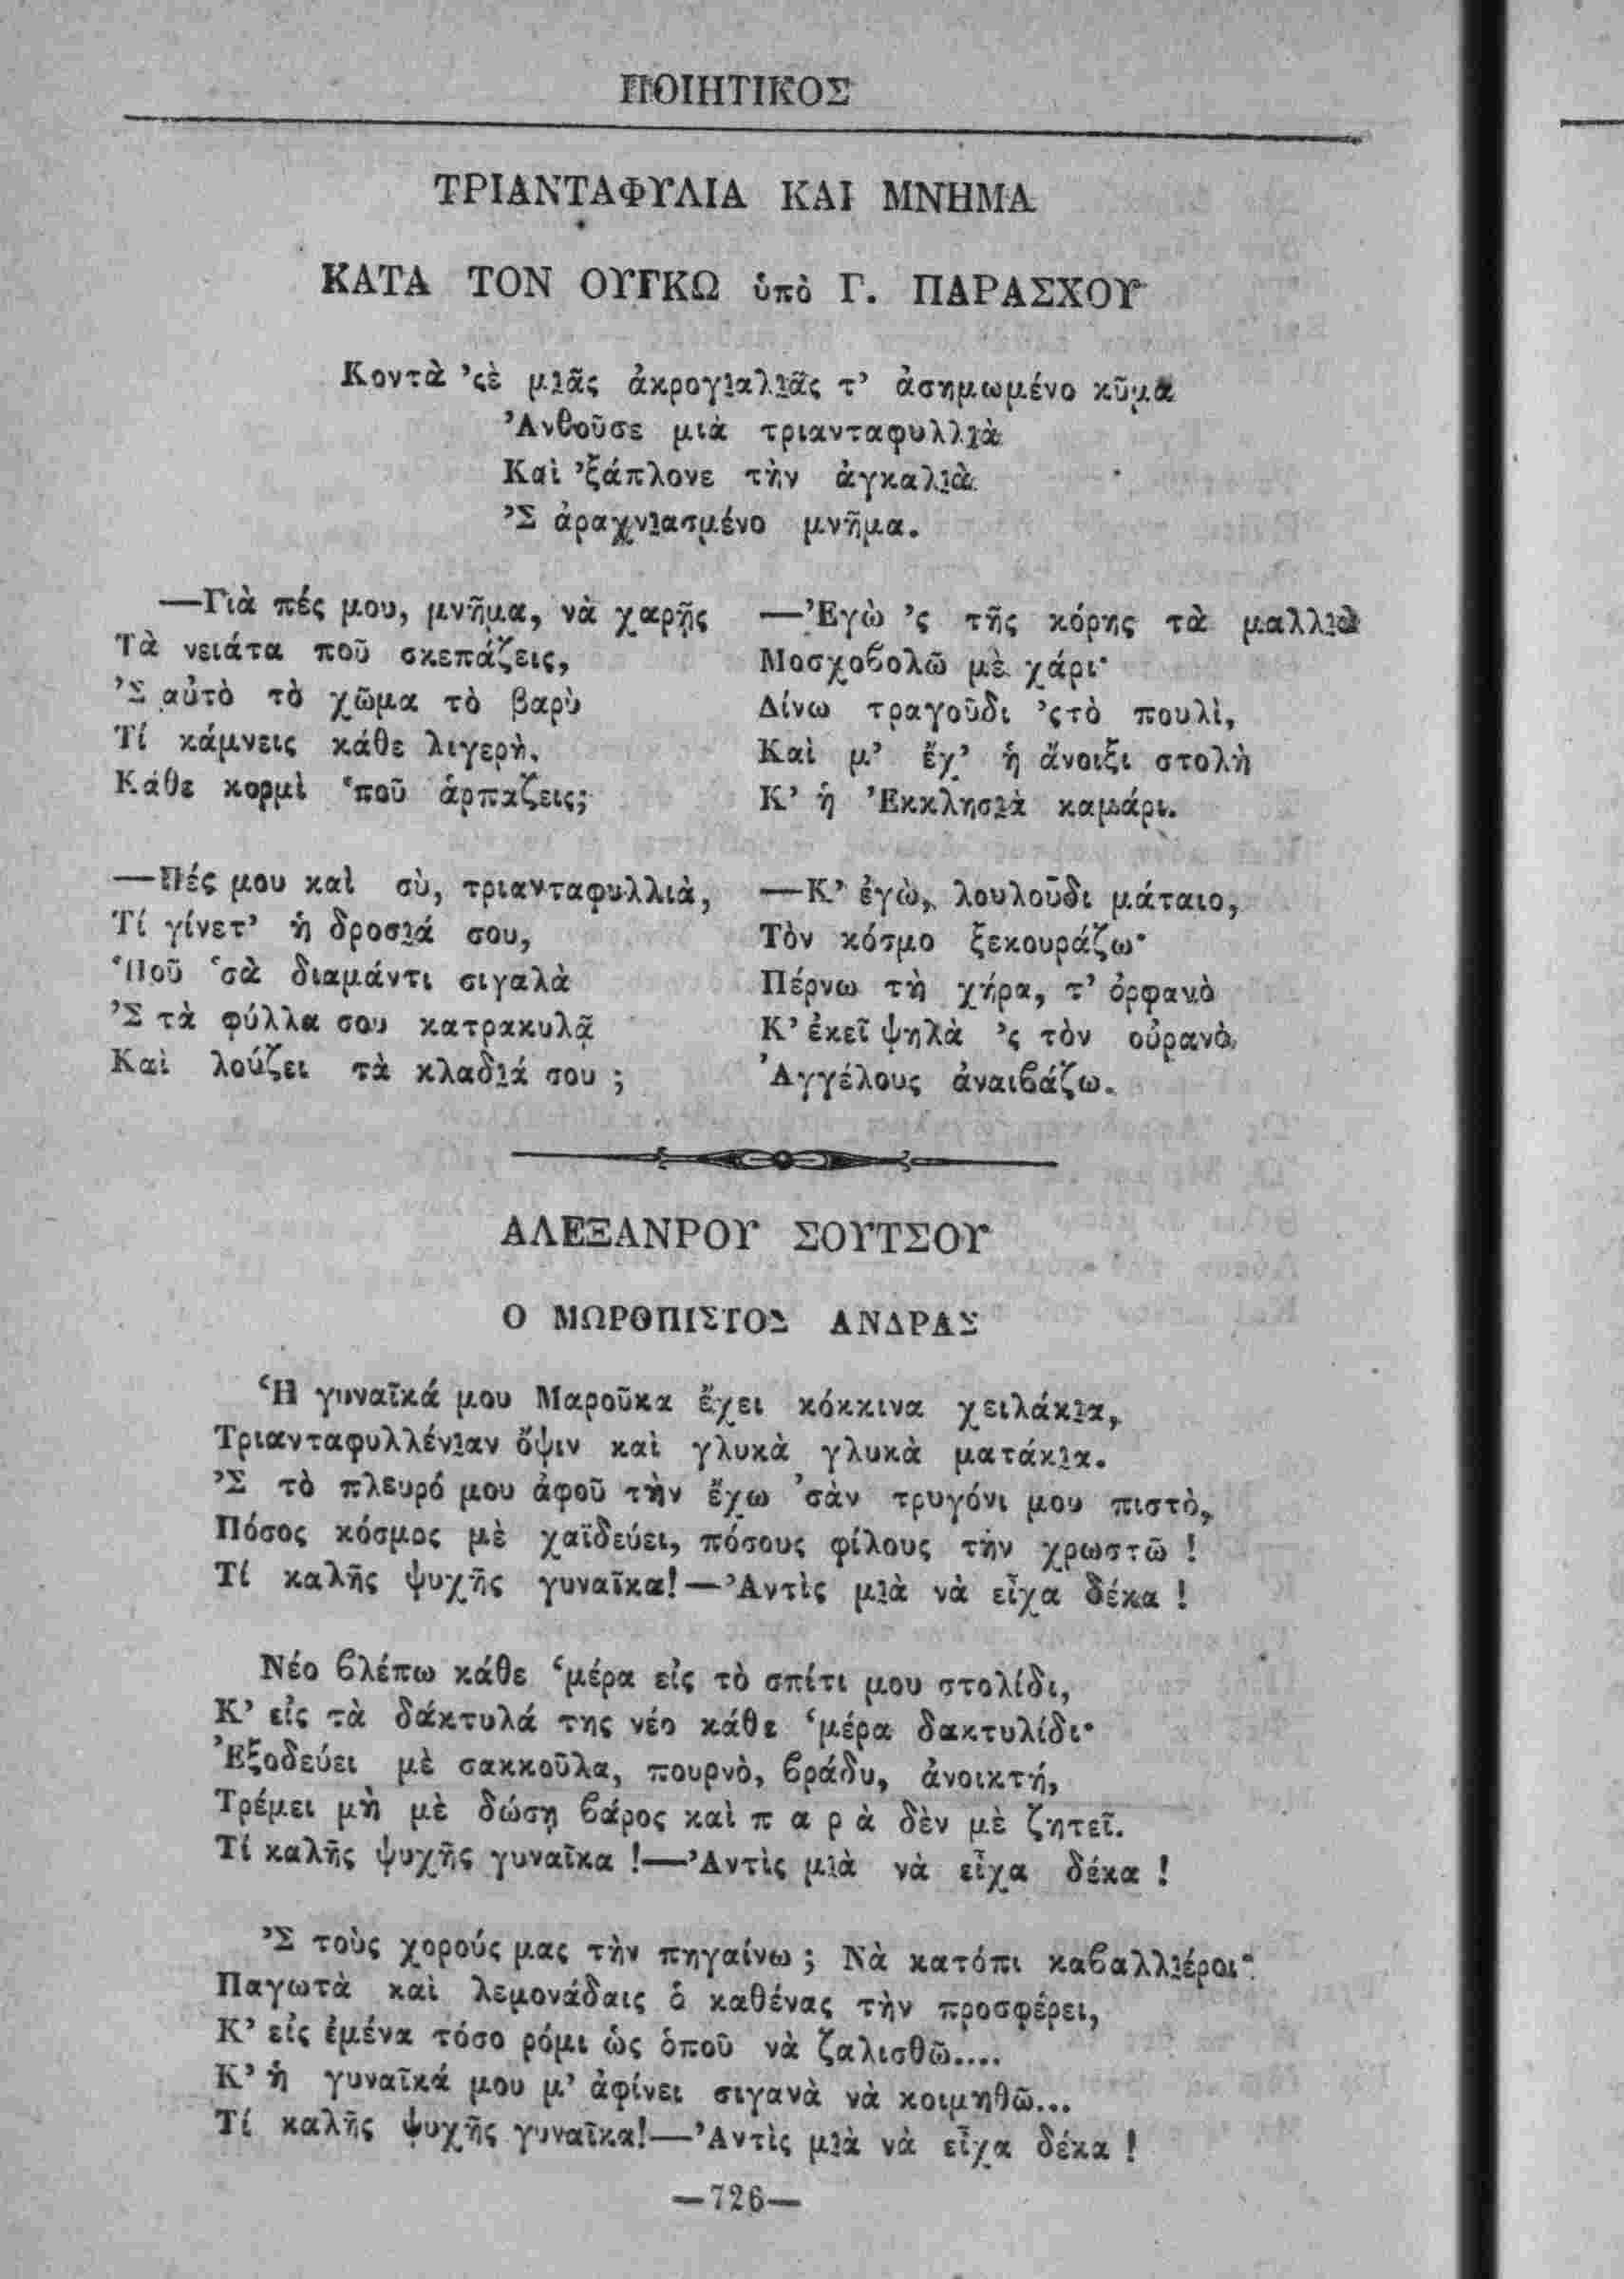 ΠΟΙΗΤΙΚΟΣ
ΤΡΙΑΝΤΑΦΥΛΙΑ ΚΑΙ ΜΝΗΜΑ
ΚΑΤΑ ΤΟΝ ΟΥΓΚΩ ὑπὸ Γ. ΠΑΡΑΣΧΟΥ
Κοντὰ ’ςὲ μιᾶς ἀκρογιαλιᾶς τ’ ἀσημωμένο κῦμα
’Ανθοῦσε μιὰ τριανταφυλλιὰ
Καὶ ’ξάπλονε τὴν ἀγκαλιὰ
’Σ ἀραχνιασμένο μνῆμα.
—Γιὰ πές μου, μνῆμα, νὰ χαρῇς
Τὰ νειάτα ποῦ σκεπάζεις,
’Σ αὐτὸ τὸ χῶμα τὸ βαρὺ
Τί κάμνεις κάθε λιγερὴ,
Κάθε κορμὶ ‘ποῦ ἁρπάζεις;
—Πές μου καὶ σὺ, τριανταφυλλιὰ,
Τί γίνετ’ ἡ δροσιά σου,
‘Ποῦ ‘σὰ διαμάντι σιγαλὰ
’Σ τὰ φύλλα σου κατρακυλᾷ
Καὶ λούζει τὰ κλαδιά σου ;
—’Εγὼ ’ς τῆς κόρης τὰ μαλλιὰ
Μοσχοϐολῶ μὲ χάρι·
Δίνω τραγοῦδι ’ςτὸ πουλὶ,
Καὶ μ’ ἔχ’ ἡ ἄνοιξι στολὴ
Κ’ ἡ ’Εκκλησιὰ καμάρι.
—Κ’ ἐγὼ, λουλοῦδι μάταιο,
Τὸν κόσμο ξεκουράζω·
Πέρνω τὴ χήρα, τ’ ὀρφανὸ
Κ’ ἐκεῖ ψηλὰ ’ς τὸν οὐρανὸ,
’Αγγέλους ἀναιϐάζω.
ΑΛΕΞΑΝΡΟΥ ΣΟΥΤΣΟΥ
Ο ΜΩΡΟΠΙΣΤΟΣ ΑΝΔΡΑΣ
‘Η γυναῖκά μου Μαροῦκα ἔχει κόκκινα χειλάκια,
Τριανταφυλλένιαν ὄψιν καὶ γλυκὰ γλυκὰ ματάκια.
’Σ τὸ πλευρό μου ἀφοῦ τὴν ἔχω ’σὰν τρυγόνι μου πιστὸ,
Πόσος κόσμος μὲ χαϊδεύει, πόσους φίλους τὴν χρωστῶ !
Τί καλῆς ψυχῆς γυναῖκα!—’Αντὶς μιὰ νὰ εἶχα δέκα !
Νέο ϐλέπω κάθε ‘μέρα εἰς τὸ σπίτι μου στολίδι,
Κ’ εἰς τὰ δάκτυλά της νέο κάθε ‘μέρα δακτυλίδι·
’Εξοδεύει μὲ σακκοῦλα, πουρνὸ, ϐράδυ, ἀνοικτή,
Τρέμει μὴ μὲ δώσῃ ϐάρος καὶ π α ρ ὰ δὲν μὲ ζητεῖ.
Τί καλῆς ψυχῆς γυναῖκα !—’Αντὶς μιὰ νὰ εἶχα δέκα !
’Σ τοὺς χορούς μας τὴν πηγαίνω ; Νὰ κατόπι καϐαλλιέροι·
Παγωτὰ καὶ λεμονάδαις ὁ καθένας τὴν προσφέρει,
Κ’ εἰς ἐμένα τόσο ρόμι ὡς ὁποῦ νὰ ζαλισθῶ....
Κ’ ἡ γυναῖκά μου μ’ ἀφίνει σιγανὰ νὰ κοιμηθῶ...
Τί καλῆς ψυχῆς γυναῖκα!—’Αντὶς μιὰ νὰ εἶχα δέκα !
—726—